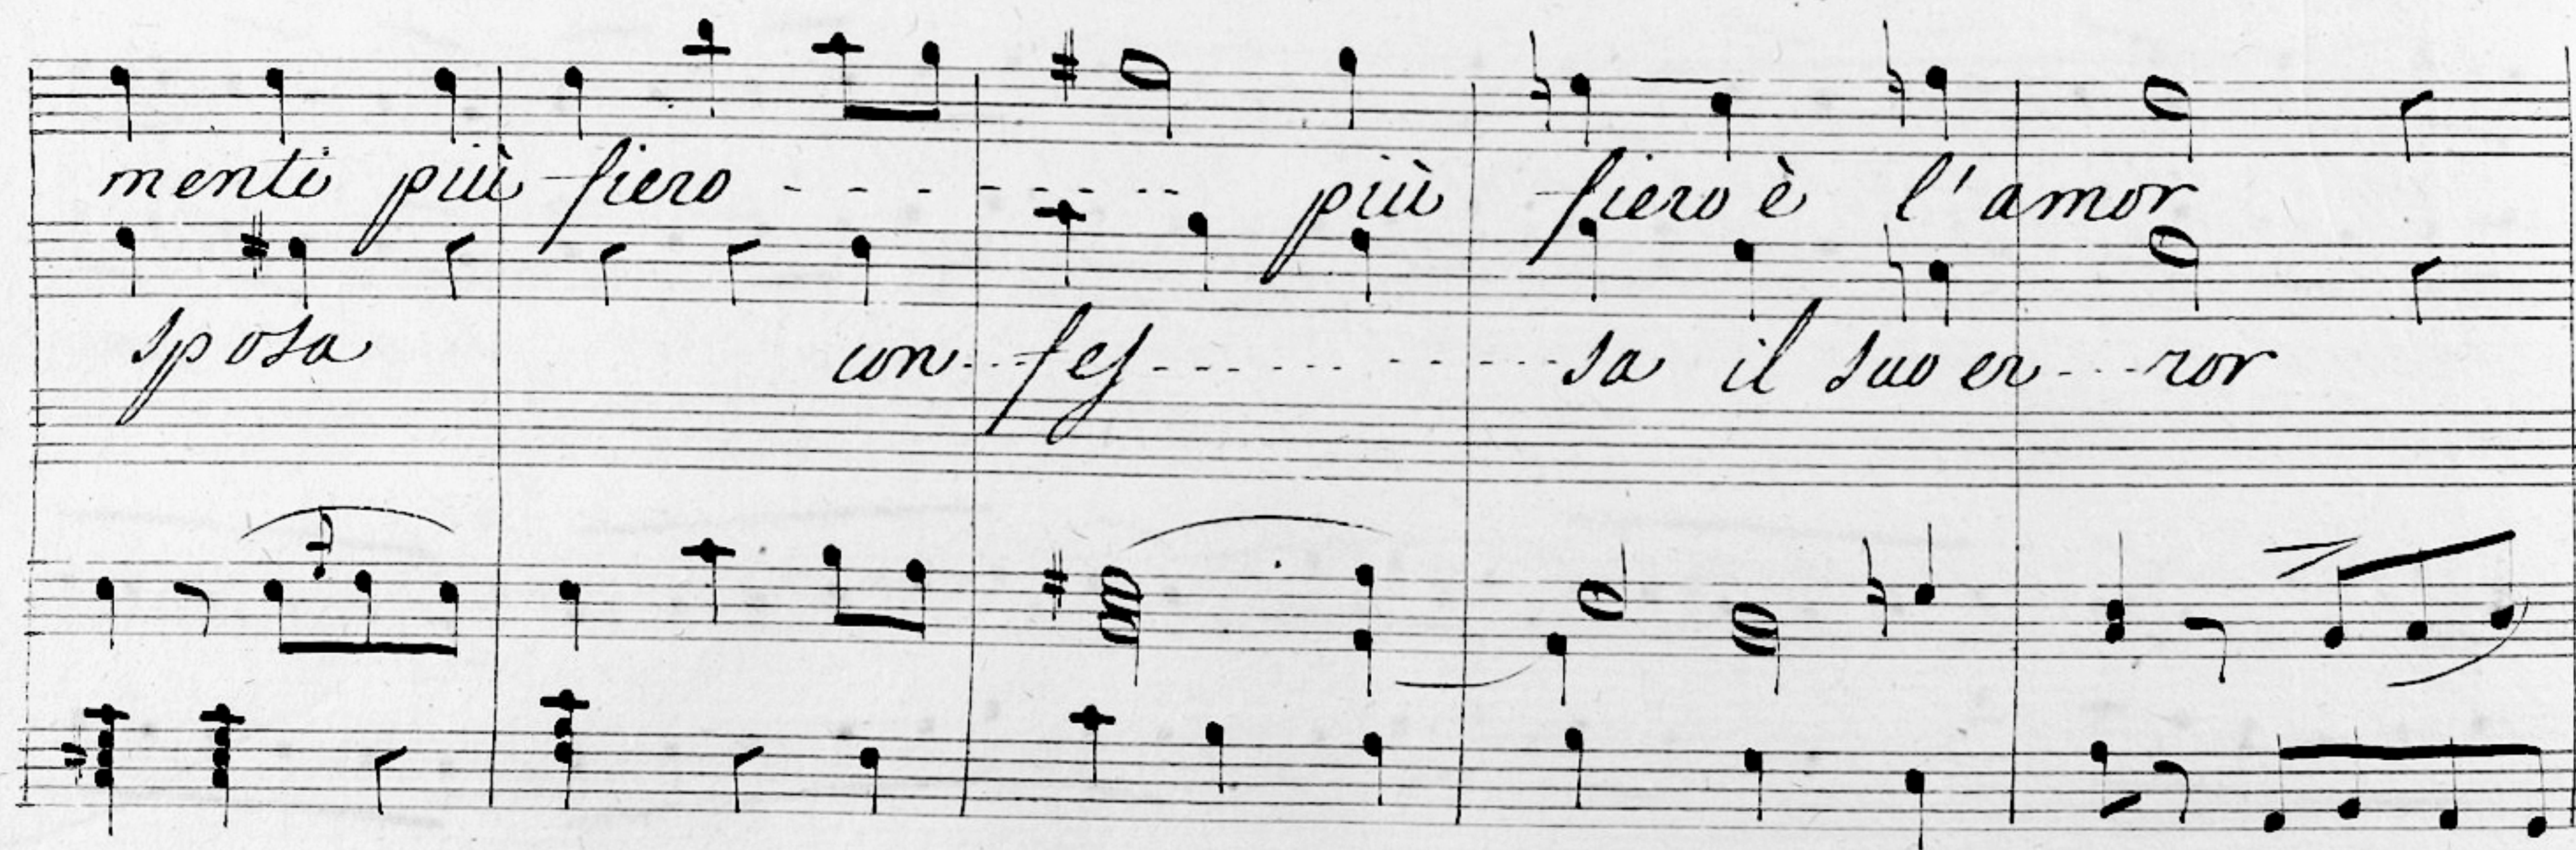 menti più fiero - - - - - - - - - più fiero è l'amor
sposa con - - fes - - - - - - - - - - sa il suo er - - - ror